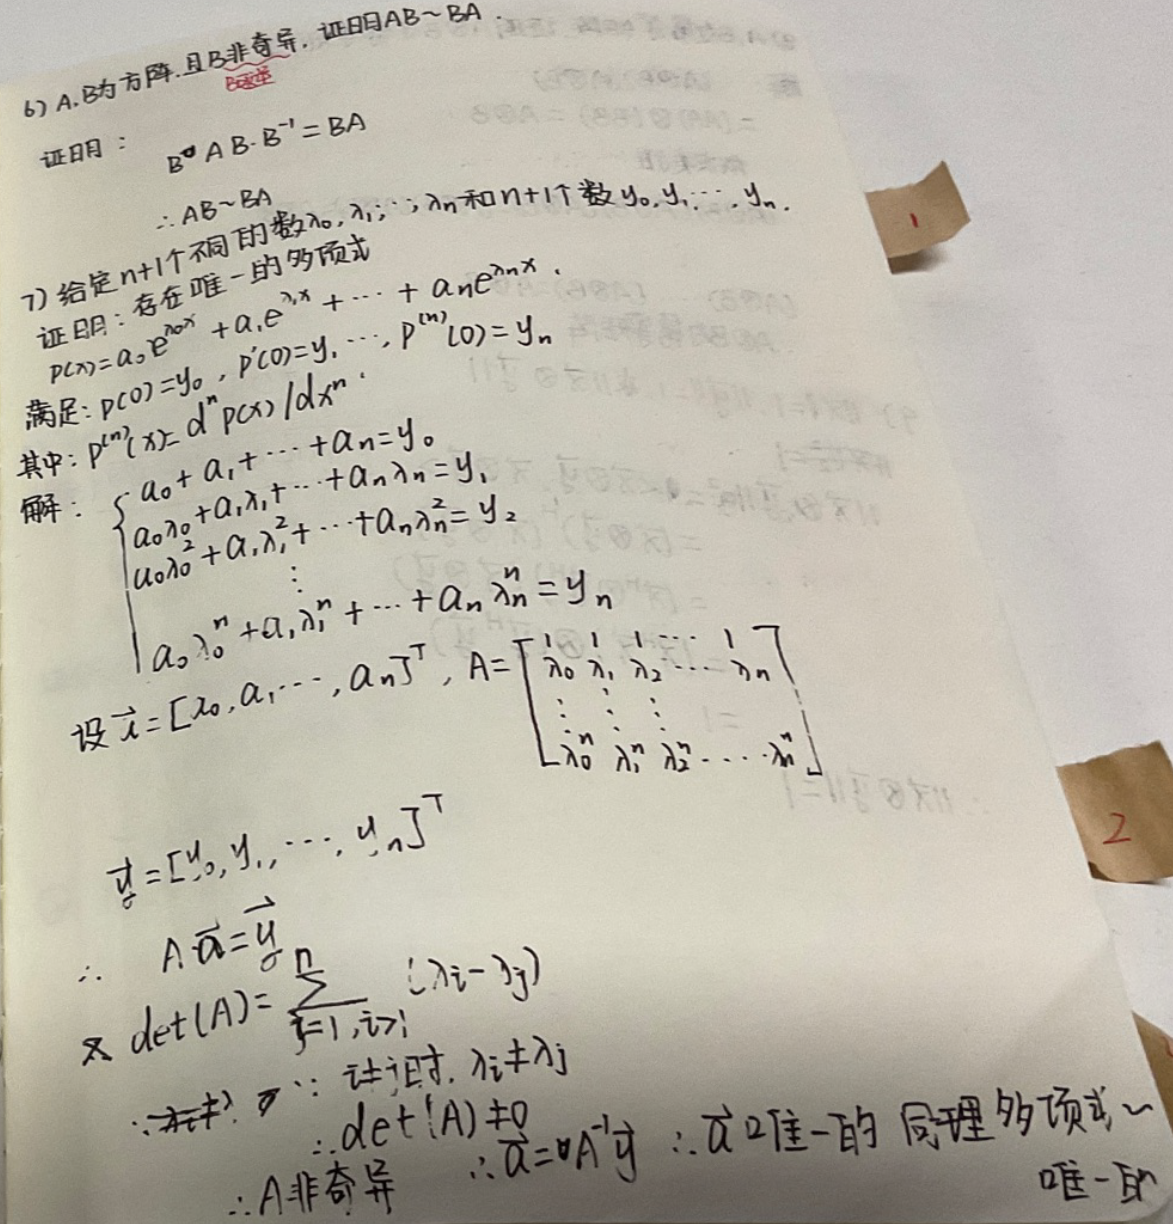 6) A.B为方阵.且B非奇异.证明AB~BA.
B可逆
证明:
B AB·B⁻¹=BA
∴AB~BA
7) 给定n+1个不同的数λ₀,λ₁,…,λn和n+1个数y₀,y₁,…,yn.
证明:存在唯一的多项式
p(x)=a₀e^{λ₀x}+a₁e^{λ₁x}+…+aₙe^{λₙx}.
满足:p(0)=y₀,p'(0)=y₁…,p⁽ⁿ⁾(0)=yₙ
其中:p⁽ⁿ⁾(x)=dⁿp(x)/dxⁿ.
解:
a₀+a₁+…+aₙ=y₀
a₀λ₀+a₁λ₁+…+aₙλₙ=y₁
a₀λ₀²+a₁λ₁²+…+aₙλₙ²=y₂
⋮
a₀λ₀ⁿ+a₁λ₁ⁿ+…+aₙλₙⁿ=yₙ
设 =[a₀,a₁…,aₙ]ᵀ, A=[1 1 1 … 1
λ₀ λ₁ λ₂ … λₙ
⋮ ⋮ ⋮
λ₀ⁿ λ₁ⁿ λ₂ⁿ ….λₙⁿ]
y⃗=[y₀,y₁,…,yₙ]ᵀ
∴ A·a⃗=y⃗
又 det(A)=∑ⁿ_{j=1,i>j}(λi-λj)
∵ i≠j时.λi≠λj
∴det(A)≠0
∴A非奇异 ∴a⃗=A⁻¹y⃗ ∴a⃗唯一的 同理多项式~
唯一的
1
2